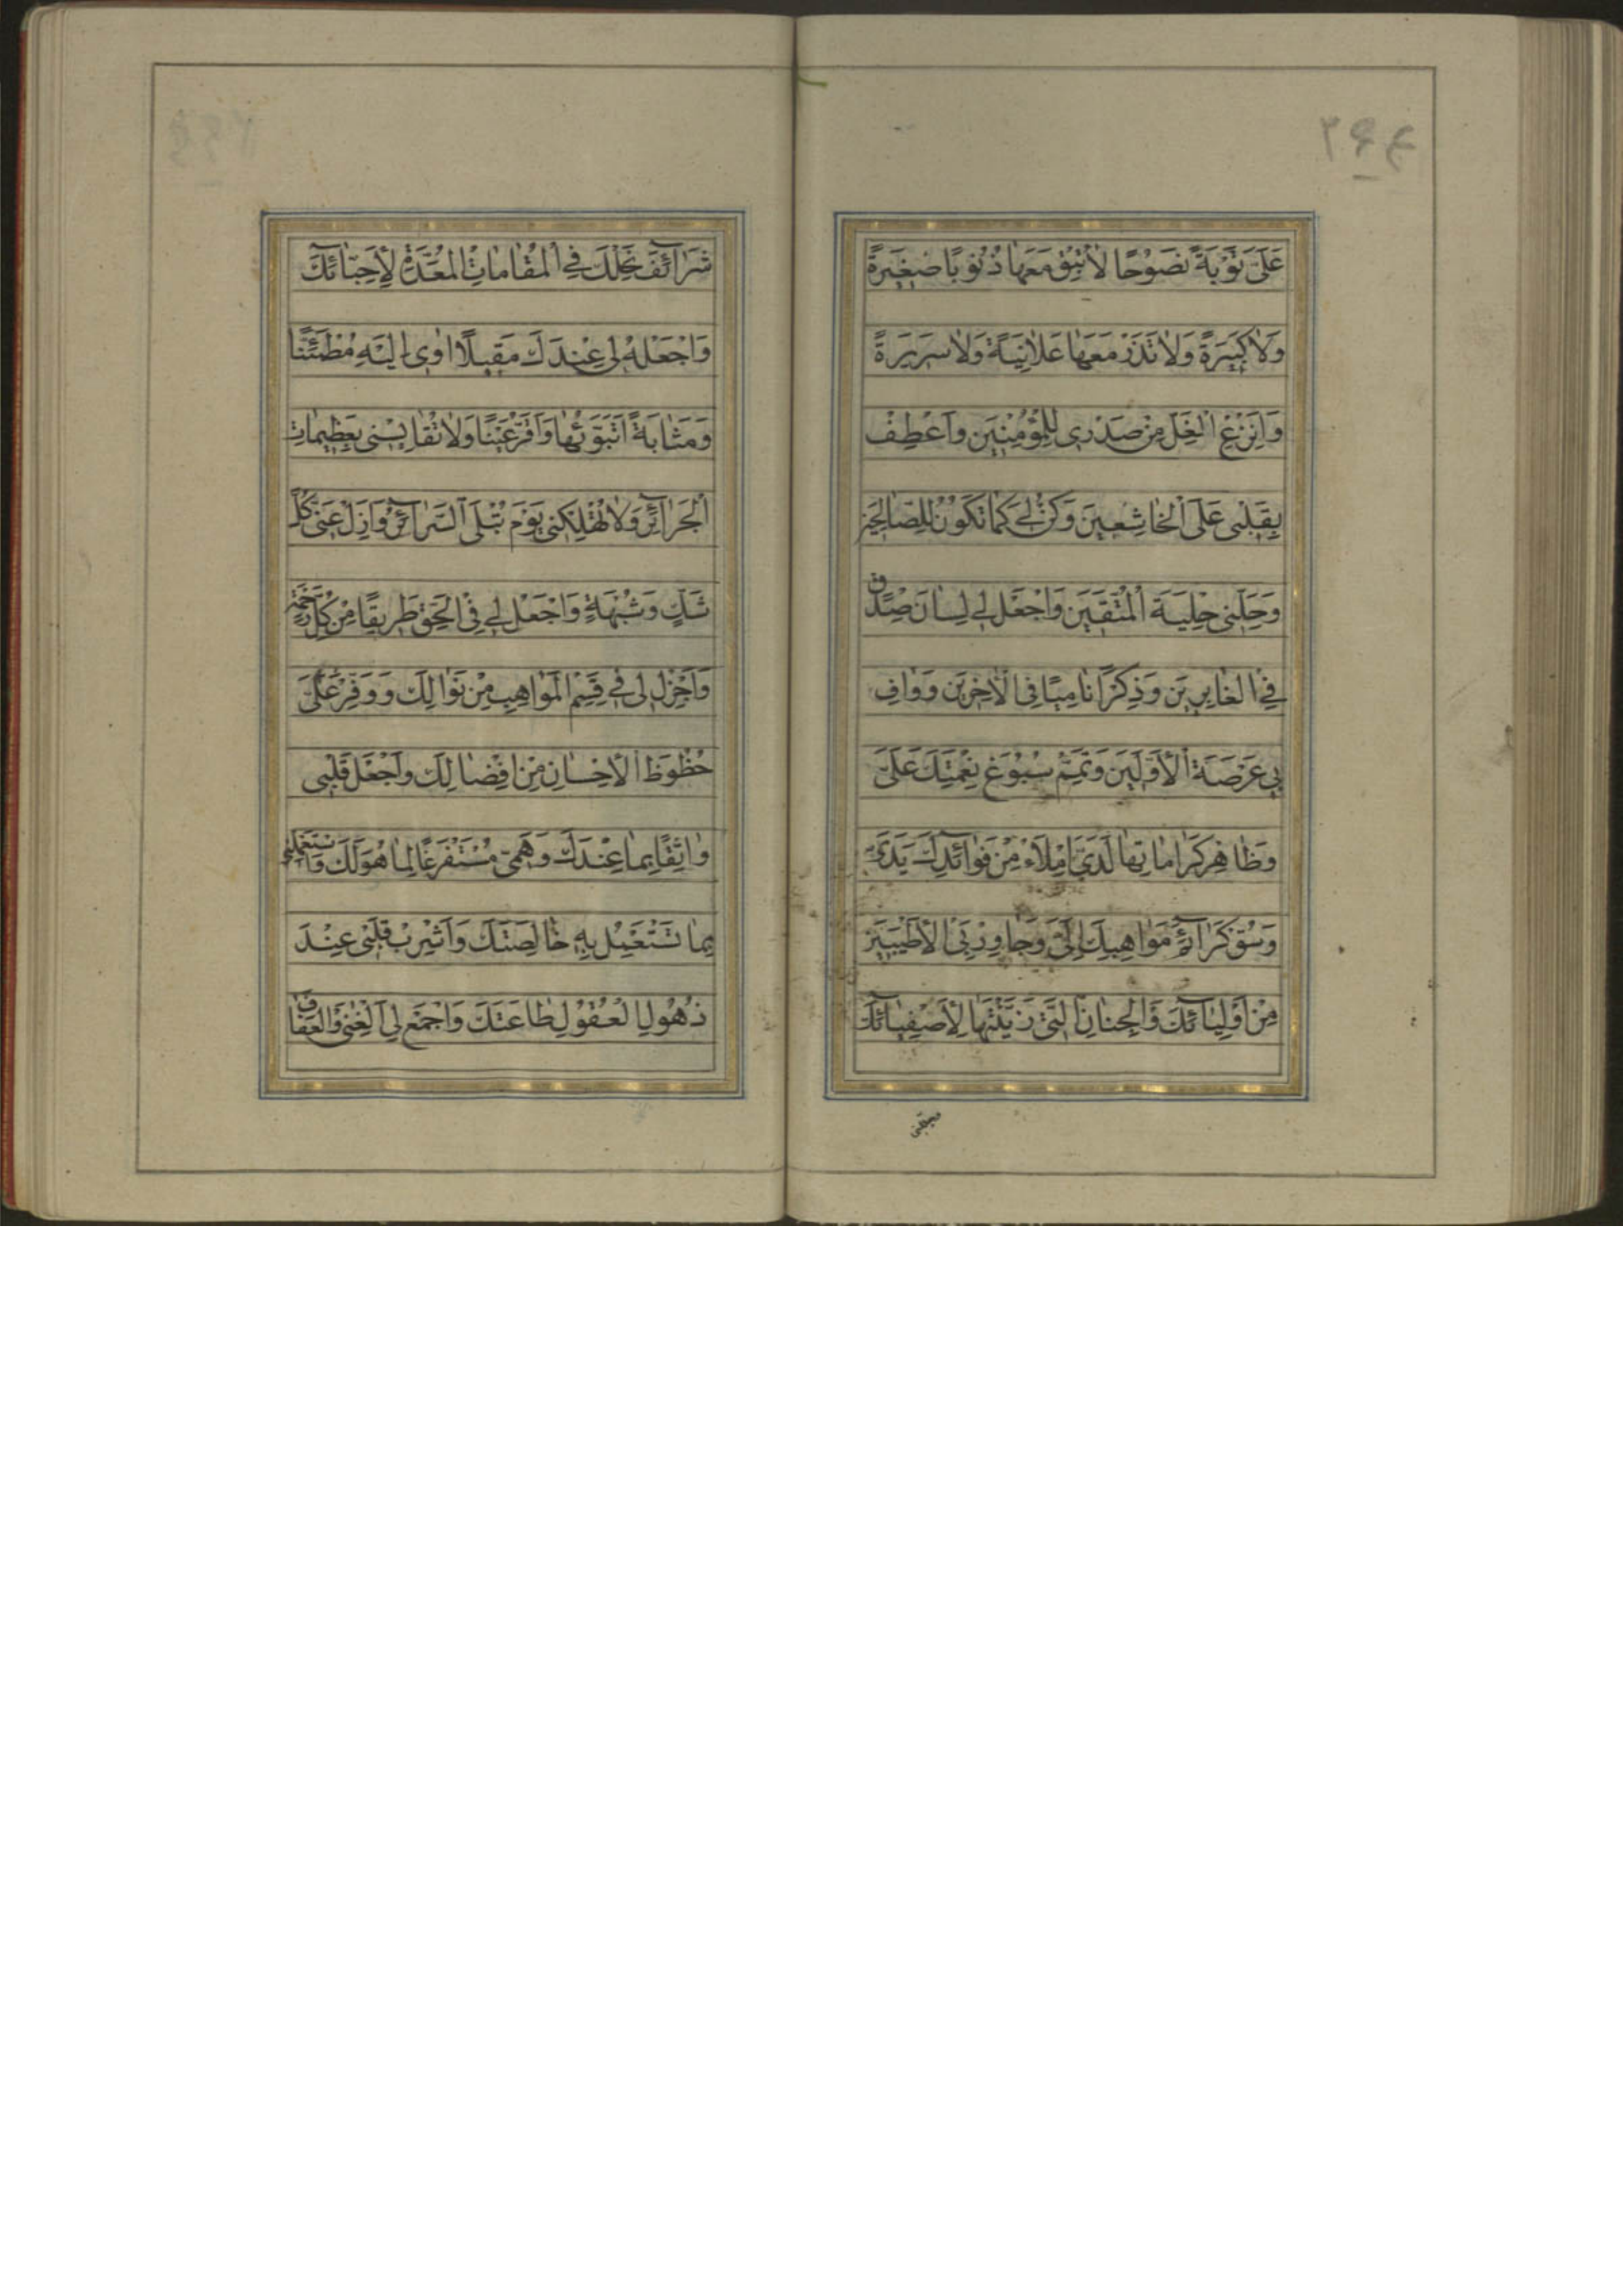 عَلَىَّ تَوْبَةً نَصُوْحًا لَاتُبْقِ مَعَهَا ذُنُوبًا صَغِيَرةً
وَلَاكَبِيَرةً وَلَاتَذَرْ مَعَهَا عَلَانِيَةً وَلَاسَرِيَرةً
وَانْزَعِ الْغِلَّ مِنْ صَدْرِى لِلْمُؤْمِنِيَن وَاَعْطِفْ
بِقَلْبِى عَلَى الْخَاشِعِينَ وَكُنْ لِى كَمَا تَكُوْنُ لِلصَّالِحِيَن
وَحَلِّنِى حِلْيَةَ الْمُتَّقِيَن وَاجْعَل لِى لِسَانَ صِدْقٍ
فِى الْغَابِرِيَن وَذِكْرًا نَامِيًا فِى الْاٰخِرِيَن وَوَافِ
بِى عَرْصَةَ الْاَوَّلِيَن وَتَمِّمْ سُبُوْغَ نِعْمَتِكَ عَلَىَّ
وَظَاهِرْ كَرَامَاتِهَا لَدَىَّ اِمْلَاءْ مِنْ فَوَائِدِكَ يَدَىَّ
وَسُقْ كَرَآئِمَ مَوَاهِبِكَ اِلَىَّ وَجَاوِرْ بِىَ الْاَطْيَبِيَن
مِنْ اَوْلِيَآئِكَ فِى الْجِنَانِ الَّتِى زَيَّنْتَهَا لِاَصْفِيَآئِكَ
شَرَآئِفَ نِحَلِكَ فِى الْمَقَامَاتِ الْمُعَدَّةِ لِاَحِبَّائِكَ
وَاجْعَلْ لِى عِنْدَكَ مَقِيلًا اٰوِى اِلَيْهِ مُطْمَئِنًّا
وَمَثَابَةً اَتَبَوَّئُهَا وَاَقَرُّ عَيْنًا وَلَاتُقَايِسْنِى بِعَظِيمَاتِ
الْجَرَآئِرِ وَلَاتُهْلِكْنِى يَوْمَ تُبْلَى السَّرَآئِرُ وَاَزِلْ عَنِّى كُلَّ
شَكٍّ وَشُبْهَةٍ وَاجْعَل لِى فِى الْحَقِّ طَرِيقًا مِنْ كُلِّ رَحْمَةٍ
وَاَجْزِلْ لِى فِى قِسَمِ الْمَوَاهِبِ مِنْ نَوَالِكَ وَوَفِّرْ عَلَىَّ
حُظُوظَ الْاِحْسَانِ مِنْ اِفْضَالِكَ وَاجْعَلْ قَلْبِى
وَاثِقًا بِمَا عِنْدَكَ وَهَمِّى مُسْتَفْرَغًا لِمَا هُوَ لَكَ وَاسْتَعْمِلْنِى
بِمَا تَسْتَعْمِلُ بِهِ خَالِصَتَكَ وَاَشْرِبْ قَلْبِى عِنْدَ
ذُهُولِ الْعُقُولِ طَاعَتَكَ وَاجْمَعْ لِىَ الْغِنَى وَالْعَفَافَ